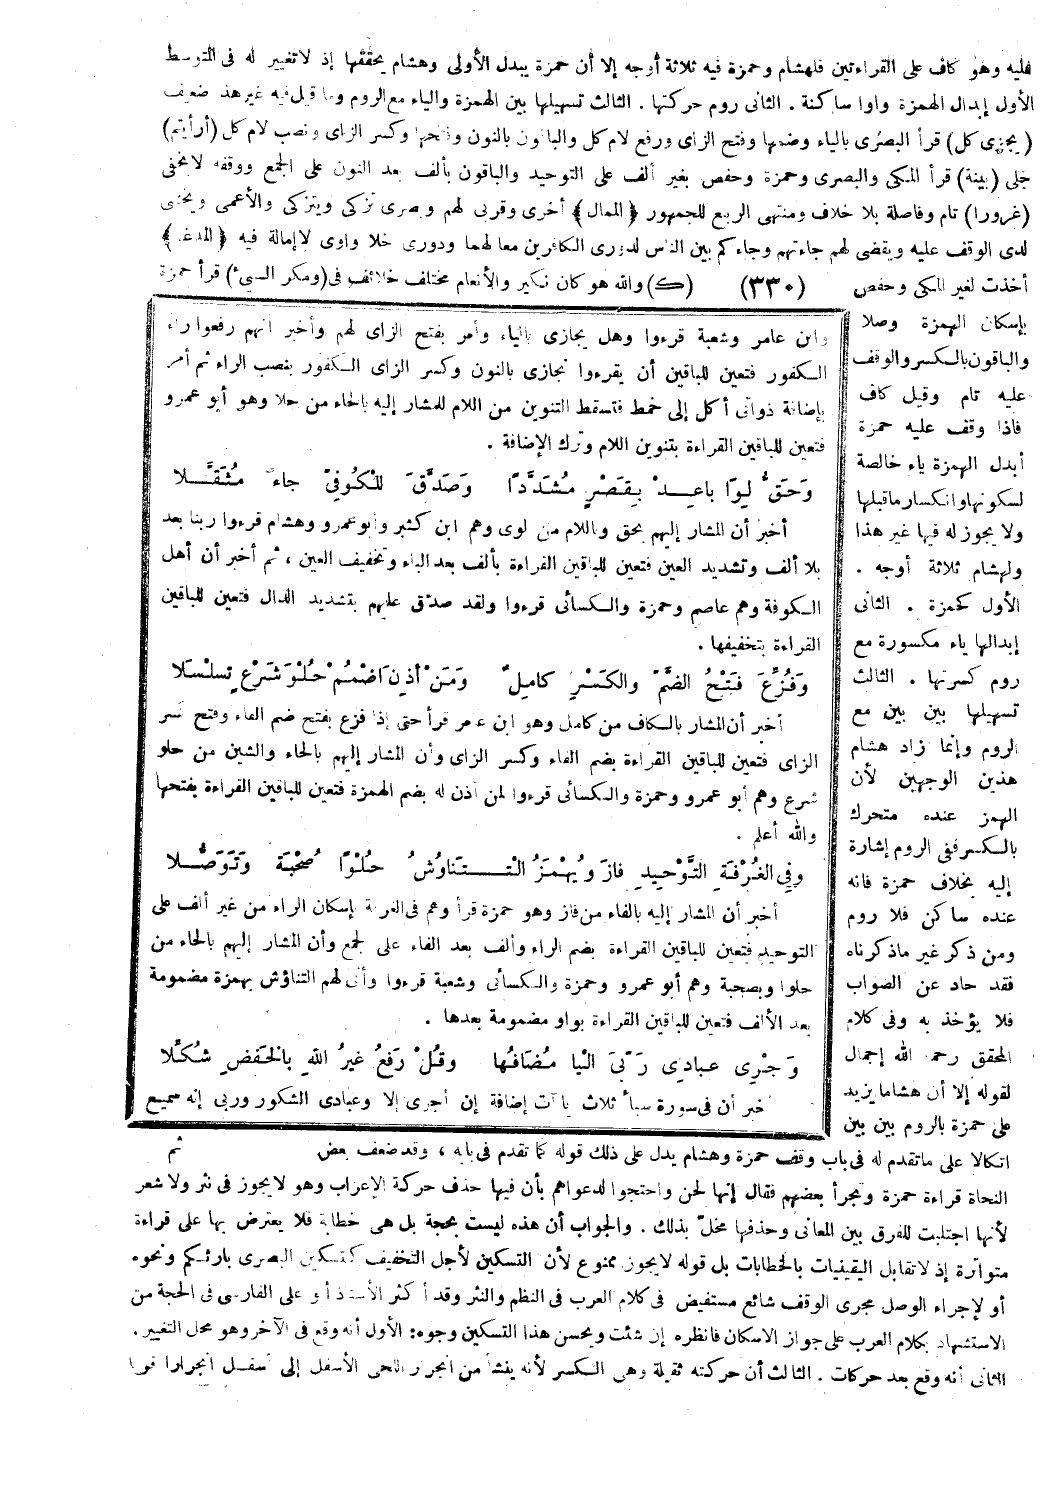 عليه وهو كاف على القراءتين فلهشام وحمزة فيه ثلاثة أوجه إلا أن حمزة يبدل الأولى وهشام يحققها إذ لا تغيير له فى التوسط
الأول إبدال الهمزة واوا ساكنة . الثانى روم حركتها . الثالث تسهيلها بين الهمزة والياء مع الروم وما قيل فيه غير هذا ضعيف
(يجزى كل) قرأ البصرى بالياء وضمها وفتح الزاى ورفع لام كل والباقون بالنون وفتحها وكسر الزاى ونصب لام كل (أرأيتم)
جلى (بينة) قرأ المكى والبصرى وحمزة وحفص بغير ألف على التوحيد والباقون بألف بعد النون على الجمع ووقفه لا يخفى
(غرورا) تام وفاصلة بلا خلاف ومنتهى الربع للجمهور ﴿الممال﴾ أخرى وقربى لهم وبصرى تزكى ويتزكى والأعمى ويخشى
لدى الوقف عليه ويقضى لهم جاءتهم وجاءكم بين الناس لدورى الكافرين معا لهما ودورى خلا واوى لا إمالة فيه ﴿المدغم﴾
أخذت لغير المكى وحفص (٣٣٠) (ك) والله هو كان نكير والأنعام مختلف خلائف فى (ومكر السيئ) قرأ حمزة
بإسكان الهمزة وصلا
والباقون بالكسر والوقف
عليه تام وقيل كاف
فاذا وقف عليه حمزة
أبدل الهمزة ياء خالصة
لسكونها وانكسار ما قبلها
ولا يجوز له فيها غير هذا
ولهشام ثلاثة أوجه .
الأول كحمزة . الثانى
إبدالها ياء مكسورة مع
روم كسرتها . الثالث
تسهيلها بين بين مع
الروم وإنما زاد هشام
هذين الوجهين لأن
الهمز عنده متحرك
بالكسر ففى الروم إشارة
إليه بخلاف حمزة فانه
عنده ساكن فلا روم
ومن ذكر غير ما ذكرناه
فقد حاد عن الصواب
فلا يؤخذ به وفى كلام
المحقق رحمه الله إجمال
لقوله إلا أن هشاما يزيد
على حمزة بالروم بين بين
وابن عامر وشعبة قرءوا وهل يجازى بالياء وأمر بفتح الزاى لهم وأخبر أنهم رفعوا راء
الكفور فتعين للباقين أن يقرءوا نجازى بالنون وكسر الزاى الكفور بنصب الراء ثم أمر
بإضافة ذواتى أكل إلى خمط فتسقط التنوين من اللام للمشار إليه بالحاء من حلا وهو أبو عمرو
فتعين للباقين القراءة بتنوين اللام وترك الإضافة .
وَحَقُّ لِوَا بَاعِدْ بِقَصْرٍ مُشَدَّدًا وَصَدَّقَ لِلْكُوفِيِّ جَاءَ مُثَقَّلَا
أخبر أن المشار إليهم بحق واللام من لوى وهم ابن كثير وأبو عمرو وهشام قرءوا ربنا بعد
بلا ألف وتشديد العين فتعين للباقين القراءة بألف بعد الباء وتخفيف العين ، ثم أخبر أن أهل
الكوفة وهم عاصم وحمزة والكسائى قرءوا ولقد صدق عليهم بتشديد الدال فتعين للباقين
القراءة بتخفيفها .
وَفُزِّعَ فَتْحُ الضَّمِّ وَالكَسْرِ كَامِلٌ وَمَنْ أَذِنَ اضْمُمْ حُلْوَ شَرْعٍ تَسَلْسَلَا
أخبر أن المشار بالكاف من كامل وهو ابن عامر قرأ حتى إذا فزع بفتح ضم الفاء وفتح كسر
الزاى فتعين للباقين القراءة بضم الفاء وكسر الزاى وأن المشار إليهم بالحاء والشين من حلو
شرع وهم أبو عمرو وحمزة والكسائى قرءوا لمن اذن له بضم الهمزة فتعين للباقين القراءة بفتحها
والله أعلم .
وَفِي الغُرْفَةِ التَّوْحِيدُ فَازَ وَيُهْمَزُ الْتَّنَاوُشُ حُلْوًا صُحْبَةً وَتَوَصُّلَا
أخبر أن المشار إليه بالفاء من فاز وهو حمزة قرأ وهم فى الغرفة بإسكان الراء من غير ألف على
التوحيد فتعين للباقين القراءة بضم الراء وألف بعد الفاء على الجمع وأن المشار إليهم بالحاء من
حلوا وبصحبة وهم أبو عمرو وحمزة والكسائى وشعبة قرءوا وأنى لهم التناؤش بهمزة مضمومة
بعد الألف فتعين للباقين القراءة بواو مضمومة بعدها .
وَأَجْرِي عِبَادِي رَبِّيَ الْيَا مُضَافُهَا وَقُلْ رَفْعُ غَيْرُ اللهِ بِالْخَفْضِ شُكِّلَا
أخبر أن فى سورة سبأ ثلاث ياآت إضافة إن أجرى إلا وعبادى الشكور وربى إنه سميع
اتكالا على ما تقدم له فى باب وقف حمزة وهشام يدل على ذلك قوله كما تقدم فى بابه ، وقد ضعف بعض ثم
النحاة قراءة حمزة وتجرأ بعضهم فقال إنها لحن واحتجوا لدعواهم بأن فيها حذف حركة الإعراب وهو لا يجوز فى نثر ولا شعر
لأنها اجتلبت للفرق بين المعانى وحذفها مخل بذلك . والجواب أن هذه ليست بحجة بل هى خطابة فلا يعترض بها على قراءة
متواترة إذ لا تقابل اليقينيات بالخطابات بل قوله لا يجوز ممنوع لأن التسكين لأجل التخفيف كتسكين البصرى بارئكم ونحوه
أو لإجراء الوصل مجرى الوقف شائع مستفيض فى كلام العرب فى النظم والنثر وقد أكثر الأستاذ أبو على الفارسى فى الحجة من
الاستشهاد بكلام العرب على جواز الاسكان فانظره إن شئت ويحسن هذا التسكين وجوه: الأول أنه وقع فى الآخر وهو محل التغيير.
الثانى أنه وقع بعد حركات . الثالث أن حركته ثقيلة وهى الكسر لأنه ينشأ من انجرار اللحى الأسفل إلى أسفل انجرارا قويا